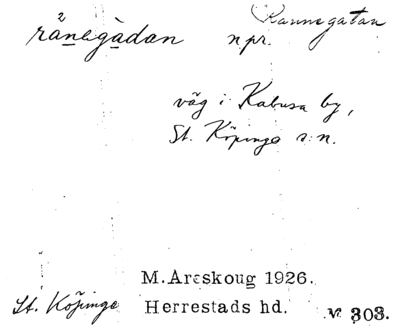 Rannegatan
rånegàdan npr.
väg i Kabusa by,
St. Köpinge s:n.
M. Areskoug 1926.
St. Köpinge Herrestads hd. M 303.